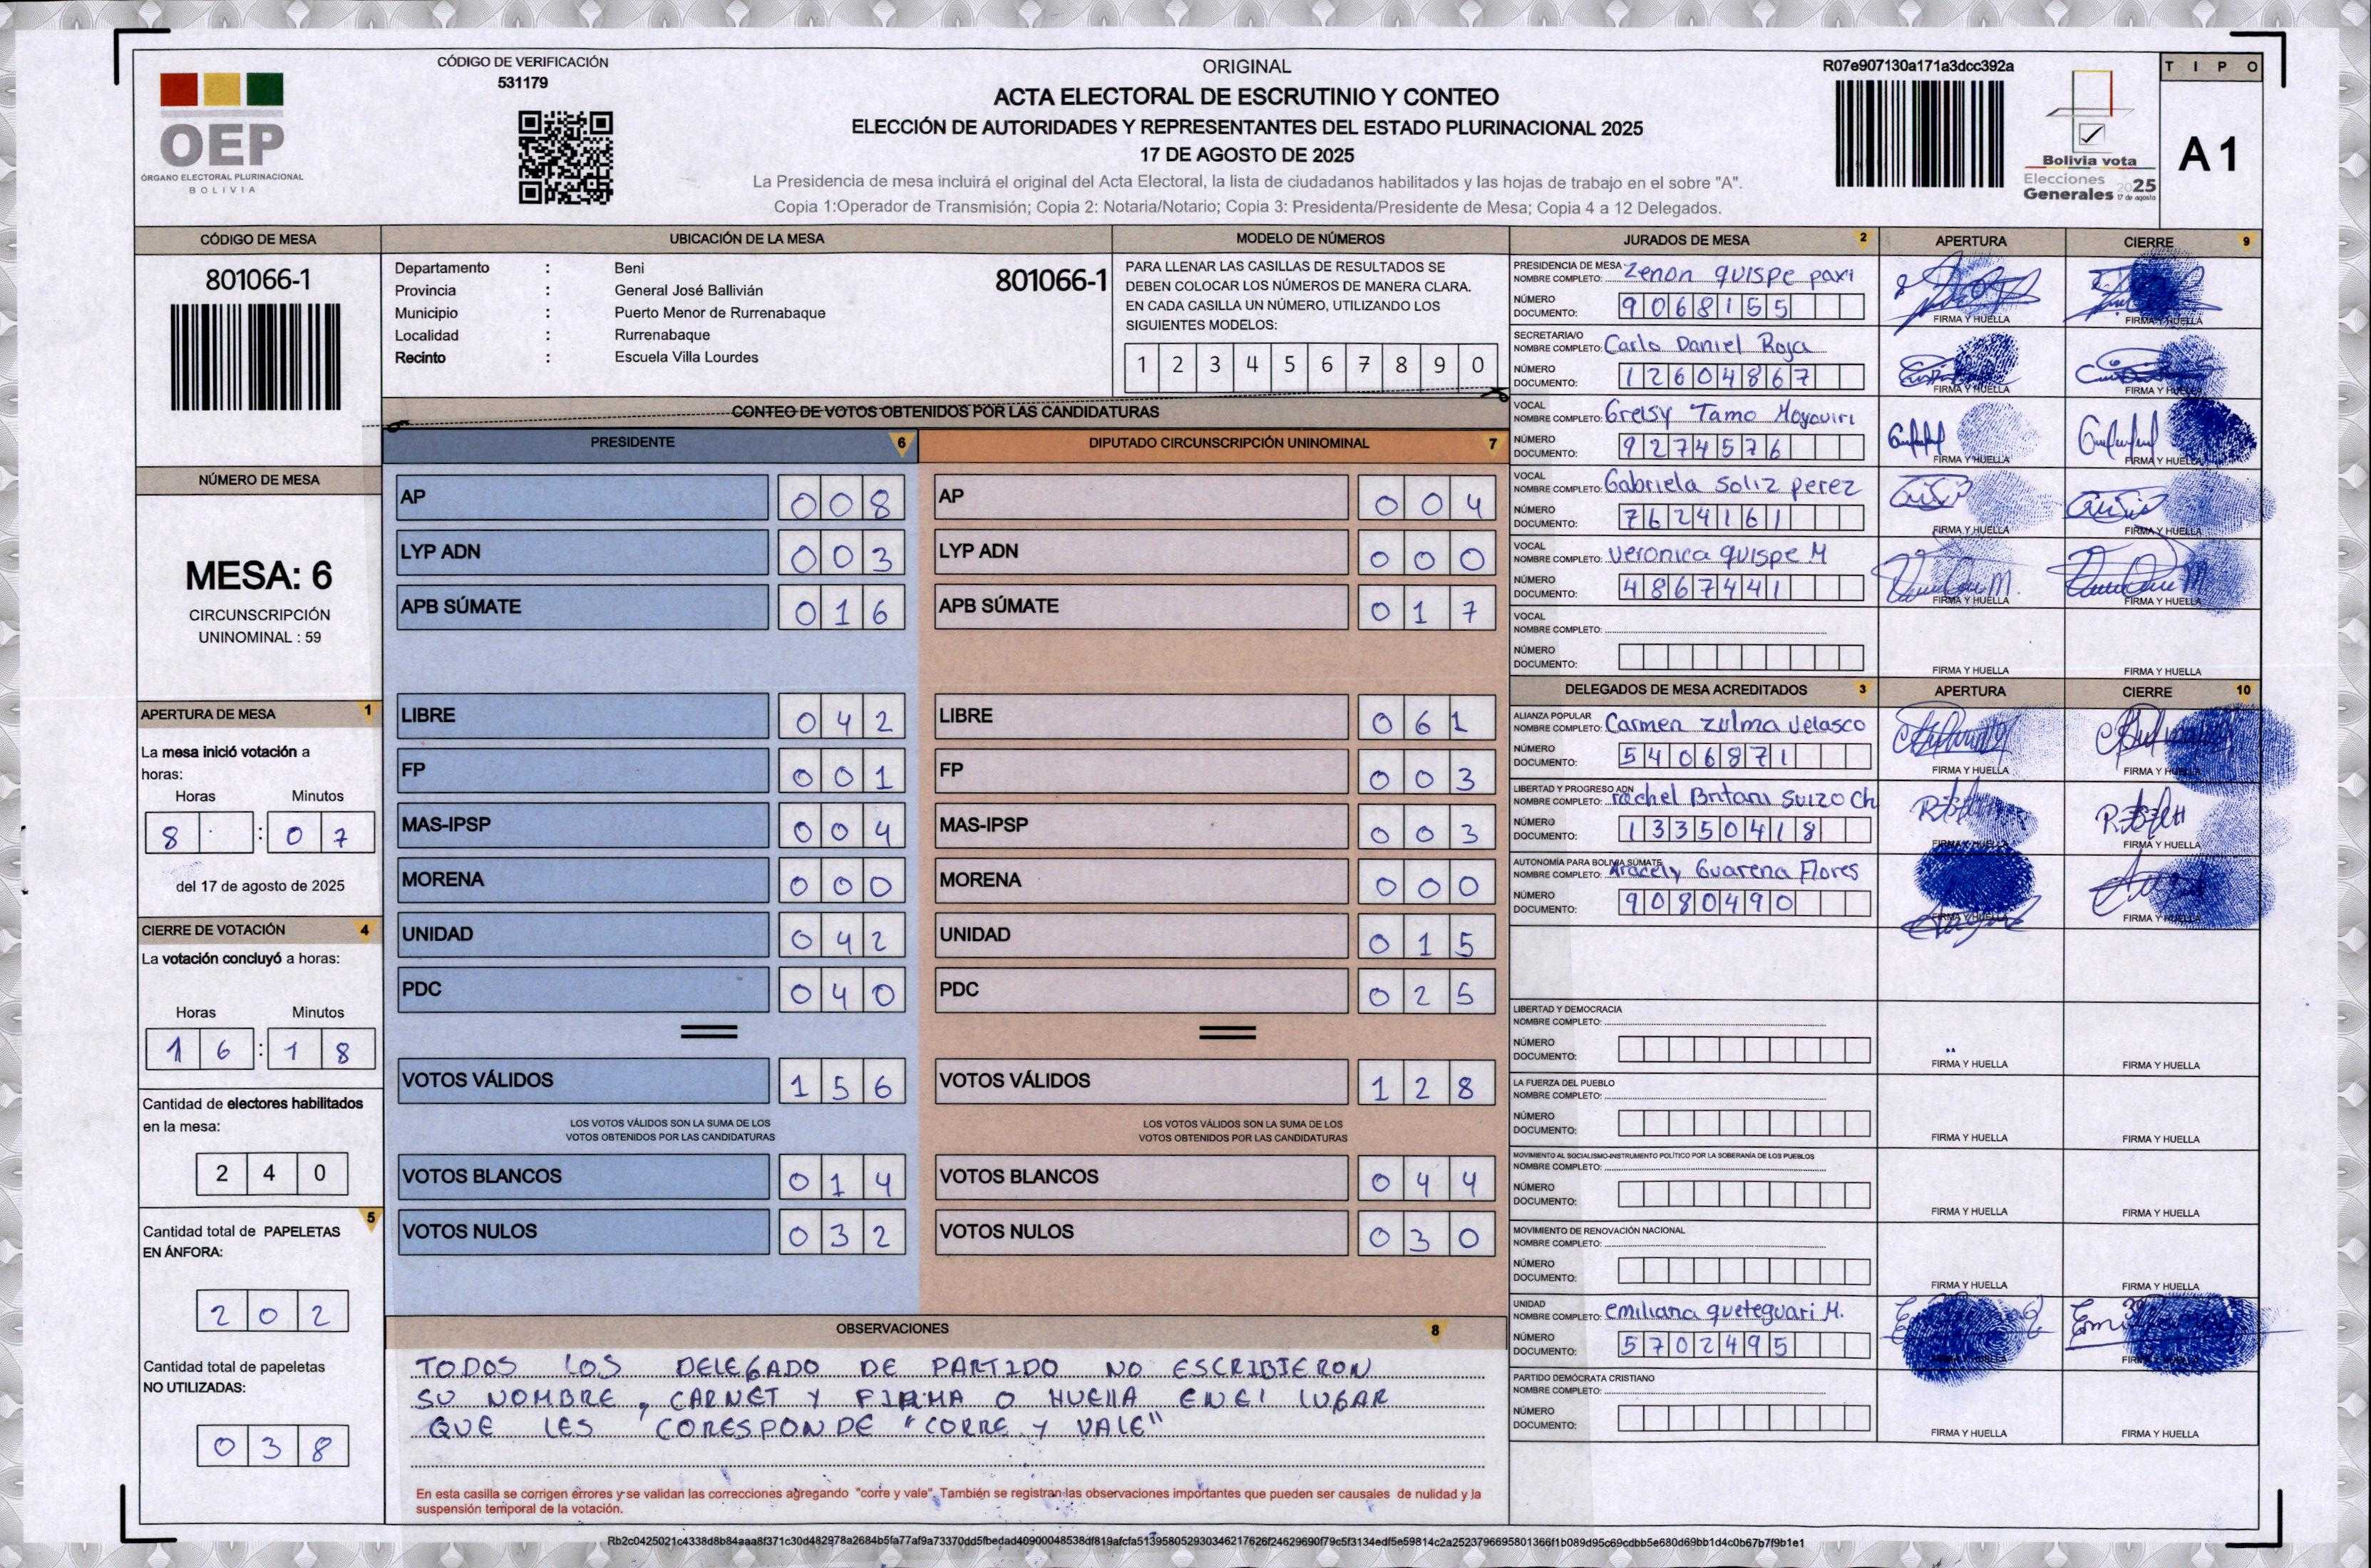 CÓDIGO DE VERIFICACIÓN
531179
OEP
ÓRGANO ELECTORAL PLURINACIONAL
BOLIVIA
ORIGINAL
ACTA ELECTORAL DE ESCRUTINIO Y CONTEO
ELECCIÓN DE AUTORIDADES Y REPRESENTANTES DEL ESTADO PLURINACIONAL 2025
17 DE AGOSTO DE 2025
La Presidencia de mesa incluirá el original del Acta Electoral, la lista de ciudadanos habilitados y las hojas de trabajo en el sobre "A".
Copia 1:Operador de Transmisión; Copia 2: Notaria/Notario; Copia 3: Presidenta/Presidente de Mesa; Copia 4 a 12 Delegados.
R07e907130a171a3dcc392a
Bolivia vota
Elecciones
Generales 2025
17 de agosto
TIPO
A1
CÓDIGO DE MESA
801066-1
UBICACIÓN DE LA MESA
Departamento : Beni
Provincia : General José Ballivián
Municipio : Puerto Menor de Rurrenabaque
Localidad : Rurrenabaque
Recinto : Escuela Villa Lourdes
801066-1
MODELO DE NÚMEROS
PARA LLENAR LAS CASILLAS DE RESULTADOS SE
DEBEN COLOCAR LOS NÚMEROS DE MANERA CLARA.
EN CADA CASILLA UN NÚMERO, UTILIZANDO LOS
SIGUIENTES MODELOS:
1 2 3 4 5 6 7 8 9 0
NÚMERO DE MESA
MESA: 6
CIRCUNSCRIPCIÓN
UNINOMINAL : 59
APERTURA DE MESA 1
La mesa inició votación a
horas:
Horas Minutos
8 : 0 7
del 17 de agosto de 2025
CIERRE DE VOTACIÓN 4
La votación concluyó a horas:
Horas Minutos
1 6 : 1 8
Cantidad de electores habilitados
en la mesa:
2 4 0
5
Cantidad total de PAPELETAS
EN ÁNFORA:
2 0 2
Cantidad total de papeletas
NO UTILIZADAS:
0 3 8
CONTEO DE VOTOS OBTENIDOS POR LAS CANDIDATURAS
PRESIDENTE 6
AP 0 0 8
LYP ADN 0 0 3
APB SÚMATE 0 1 6
LIBRE 0 4 2
FP 0 0 1
MAS-IPSP 0 0 4
MORENA 0 0 0
UNIDAD 0 4 2
PDC 0 4 0
VOTOS VÁLIDOS 1 5 6
LOS VOTOS VÁLIDOS SON LA SUMA DE LOS
VOTOS OBTENIDOS POR LAS CANDIDATURAS
VOTOS BLANCOS 0 1 4
VOTOS NULOS 0 3 2
DIPUTADO CIRCUNSCRIPCIÓN UNINOMINAL 7
AP 0 0 4
LYP ADN 0 0 0
APB SÚMATE 0 1 7
LIBRE 0 6 1
FP 0 0 3
MAS-IPSP 0 0 3
MORENA 0 0 0
UNIDAD 0 1 5
PDC 0 2 5
VOTOS VÁLIDOS 1 2 8
LOS VOTOS VÁLIDOS SON LA SUMA DE LOS
VOTOS OBTENIDOS POR LAS CANDIDATURAS
VOTOS BLANCOS 0 4 4
VOTOS NULOS 0 3 0
OBSERVACIONES 8
TODOS LOS DELEGADO DE PARTIDO NO ESCRIBIERON
SU NOMBRE, CARNET Y FIRMA O HUELLA EN El LUGAR
QUE LES CORESPONDE "CORRE Y VALE"
En esta casilla se corrigen errores y se validan las correcciones agregando "corre y vale". También se registran las observaciones importantes que pueden ser causales de nulidad y la
suspensión temporal de la votación.
JURADOS DE MESA 2 APERTURA CIERRE 9
PRESIDENCIA DE MESA
NOMBRE COMPLETO: Zenon quispe paxi
NÚMERO
DOCUMENTO: 9068155
FIRMA Y HUELLA FIRMA Y HUELLA
SECRETARIA/O
NOMBRE COMPLETO: Carlo Daniel Roja
NÚMERO
DOCUMENTO: 12604867
FIRMA Y HUELLA FIRMA Y HUELLA
VOCAL
NOMBRE COMPLETO: Greisy Tamo Moyoviri
NÚMERO
DOCUMENTO: 9274576
FIRMA Y HUELLA FIRMA Y HUELLA
VOCAL
NOMBRE COMPLETO: Gabriela Soliz perez
NÚMERO
DOCUMENTO: 7624161
FIRMA Y HUELLA FIRMA Y HUELLA
VOCAL
NOMBRE COMPLETO: veronica quispe M
NÚMERO
DOCUMENTO: 4867441
FIRMA Y HUELLA FIRMA Y HUELLA
VOCAL
NOMBRE COMPLETO:
NÚMERO
DOCUMENTO:
FIRMA Y HUELLA FIRMA Y HUELLA
DELEGADOS DE MESA ACREDITADOS 3 APERTURA CIERRE 10
ALIANZA POPULAR
NOMBRE COMPLETO: Carmen Zulma Velasco
NÚMERO
DOCUMENTO: 5406871
FIRMA Y HUELLA FIRMA Y HUELLA
LIBERTAD Y PROGRESO ADN
NOMBRE COMPLETO: rachel Britani Suizo Ch
NÚMERO
DOCUMENTO: 13350418
FIRMA Y HUELLA FIRMA Y HUELLA
AUTONOMÍA PARA BOLIVIA SÚMATE
NOMBRE COMPLETO: Aracely Guarena Flores
NÚMERO
DOCUMENTO: 9080490
FIRMA Y HUELLA FIRMA Y HUELLA
LIBERTAD Y DEMOCRACIA
NOMBRE COMPLETO:
NÚMERO
DOCUMENTO:
FIRMA Y HUELLA FIRMA Y HUELLA
LA FUERZA DEL PUEBLO
NOMBRE COMPLETO:
NÚMERO
DOCUMENTO:
FIRMA Y HUELLA FIRMA Y HUELLA
MOVIMIENTO AL SOCIALISMO-INSTRUMENTO POLÍTICO POR LA SOBERANÍA DE LOS PUEBLOS
NOMBRE COMPLETO:
NÚMERO
DOCUMENTO:
FIRMA Y HUELLA FIRMA Y HUELLA
MOVIMIENTO DE RENOVACIÓN NACIONAL
NOMBRE COMPLETO:
NÚMERO
DOCUMENTO:
FIRMA Y HUELLA FIRMA Y HUELLA
UNIDAD
NOMBRE COMPLETO: emiliana queteguari M.
NÚMERO
DOCUMENTO: 5702495
FIRMA Y HUELLA FIRMA Y HUELLA
PARTIDO DEMÓCRATA CRISTIANO
NOMBRE COMPLETO:
NÚMERO
DOCUMENTO:
FIRMA Y HUELLA FIRMA Y HUELLA